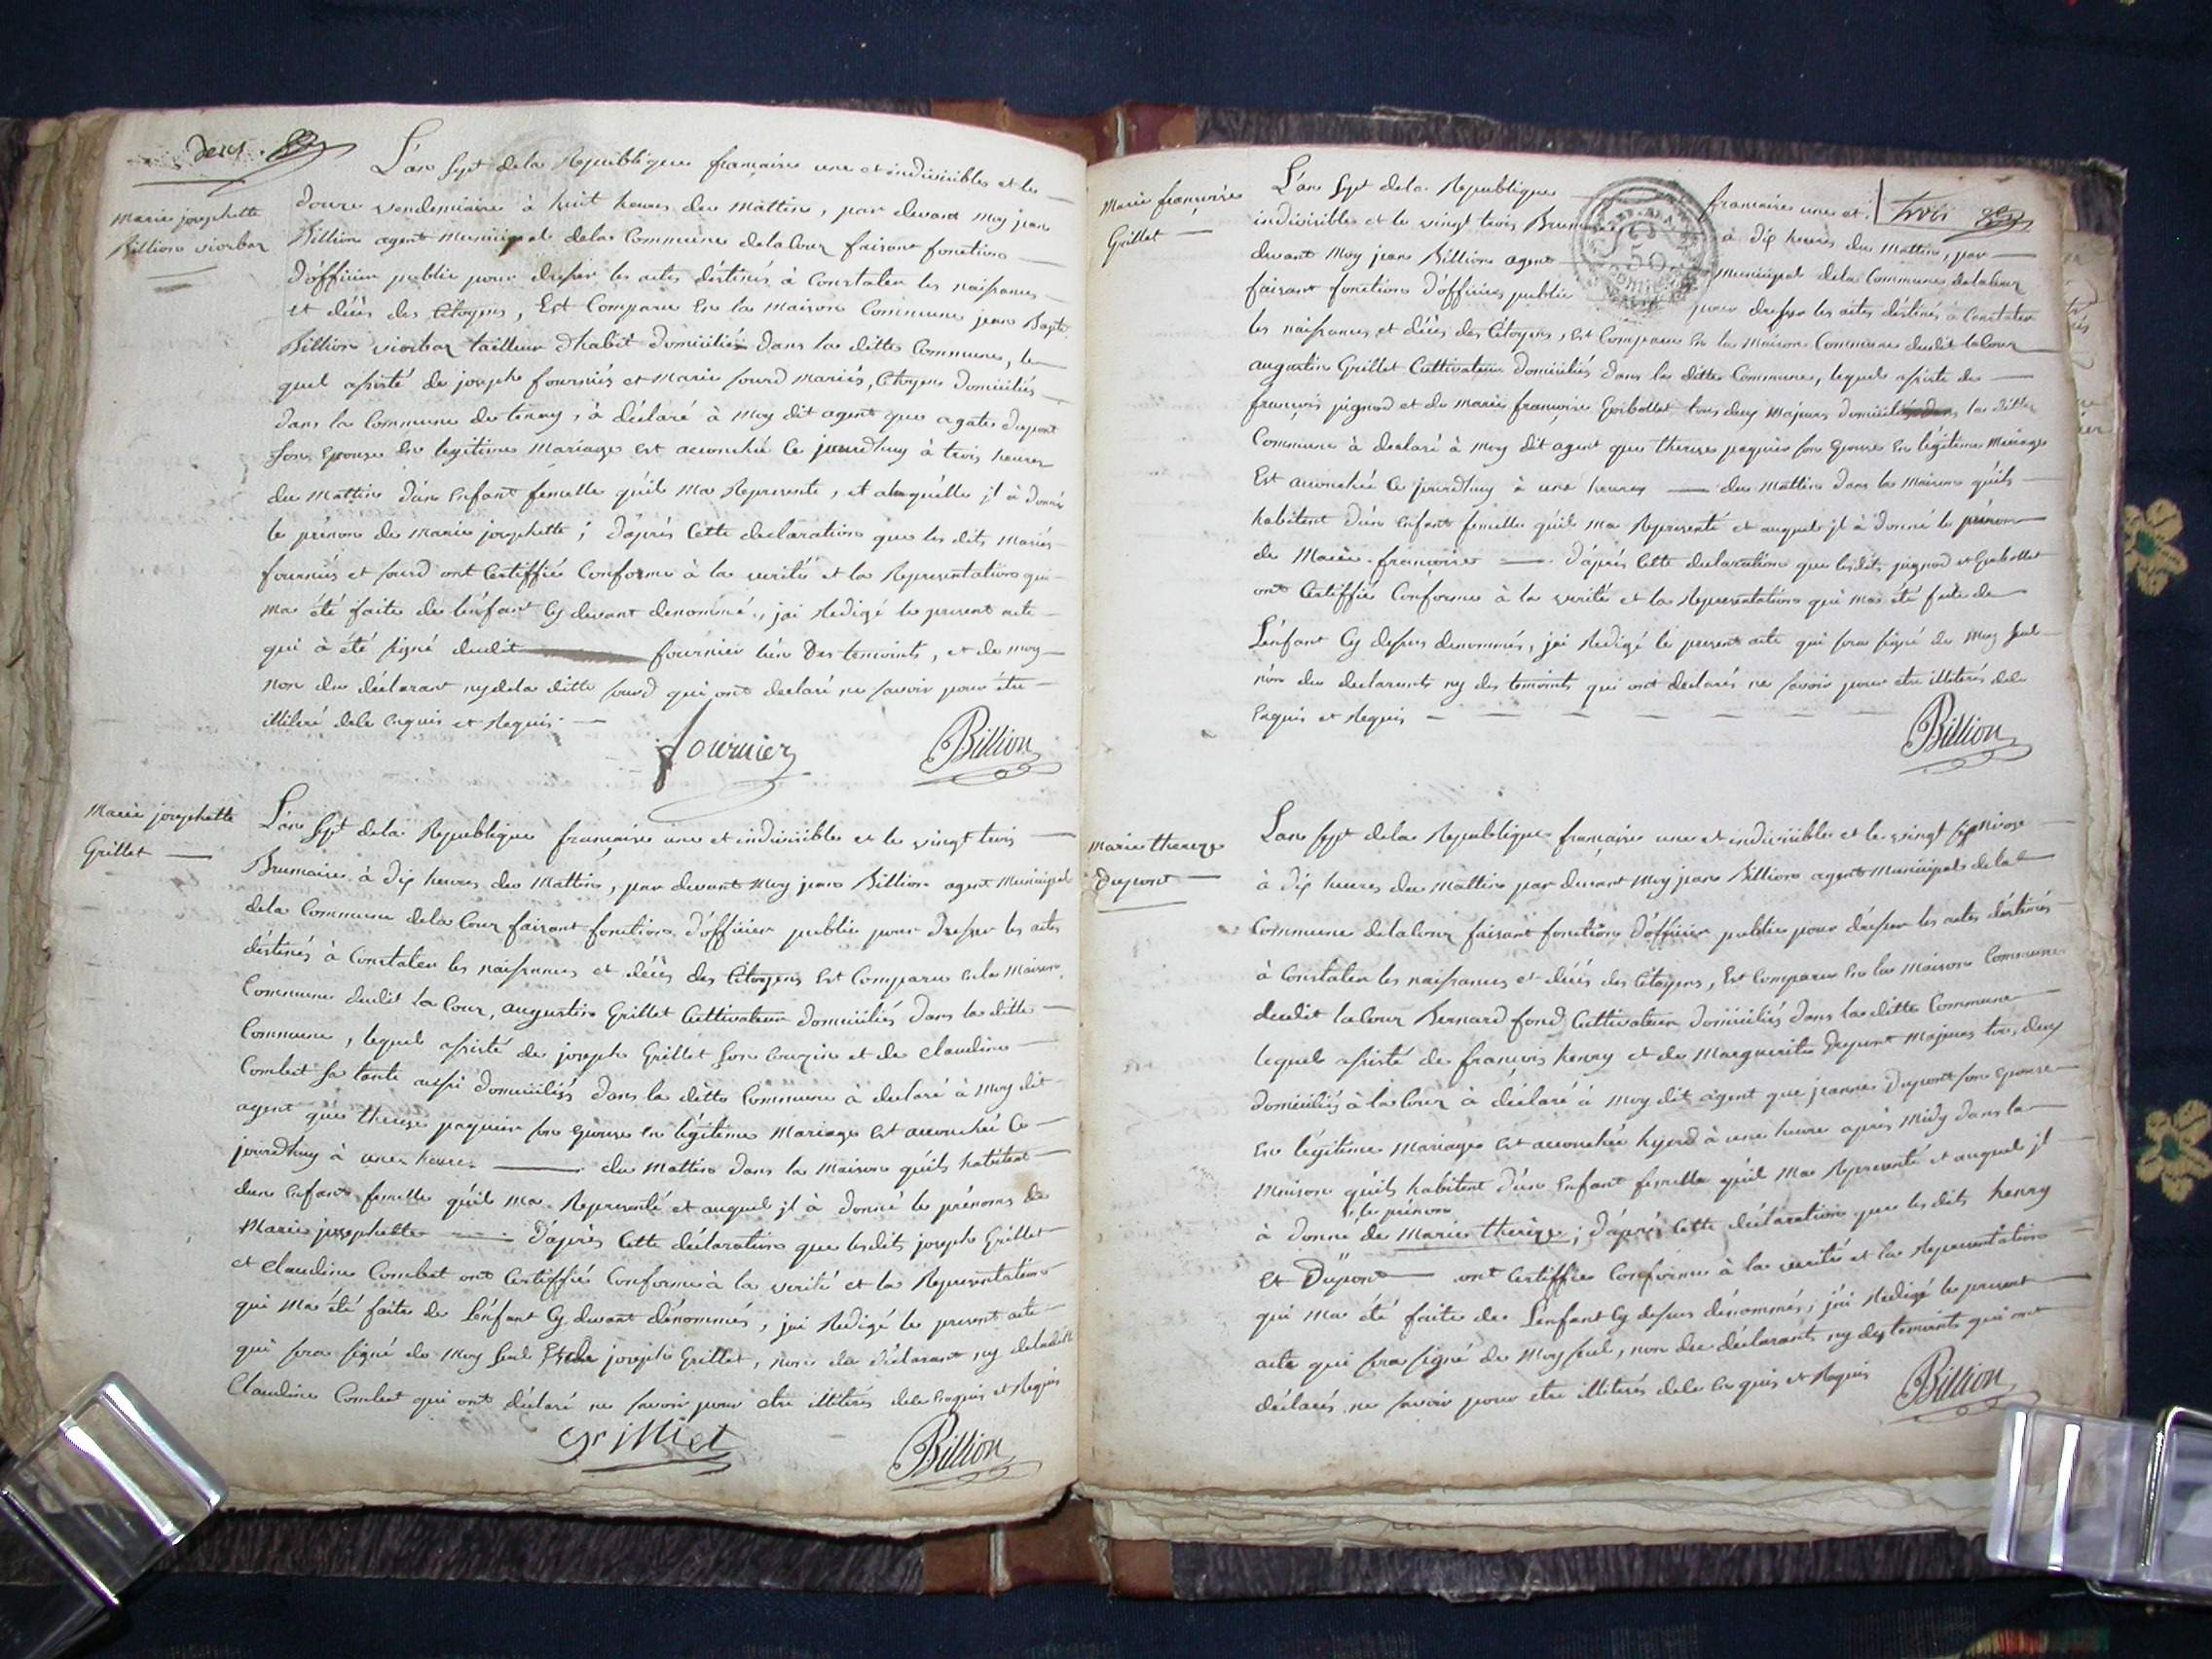 deux.
Marie josephette
Billion viorbaz
L'an sept dela Republique française une et indivisible et le
douze vendemiaire à huit heures du mattin, par devant moy jean
Billion agent municipal dela Commune delaCour faisant fonction
d'officier public pour dresser les actes déstinés à Constater les naissances
et décès des Citoyens, Est Comparu En la maison Commune jean Bapte
Billion viorbaz tailleur d'habit domicilié dans la ditte Commune, le
quel assisté de joseph fourniés et Marie sourd mariés, Citoyens domiciliés
dans la Commune de , à déclaré à moy dit agent que agate dupont
son Epouse En legitime mariage est accouchée Ce jourd'huy à trois heures
du mattin d'un Enfant femelle qu'il ma Represente, et alaquélle jl à donné
le prénom de Marie josephette ; d'après Cette declaration que les dits mariés
fourniés et sourd ont Certiffié Conforme à la verité et la Representation qui
ma été faite de l'énfant Cy devant denommé, jai Redigé le present acte
qui à été signé dudit fournier l'un Des temoints, et de moy
non du déclarant ny dela ditte sourd qui ont declaré ne savoir pour étre
illiteré dele Enquis et Requis.
fournier Billion
Marie josephette
Grillet
L'an sept dela Republique française une et indivisible et le vingt trois
Brumaire à dix heures du mattin, par devant moy jean Billion agent municipal
dela Commune dela Cour faisant fonction d'officier public pour dresser les actes
déstinés à Constater les naissances et décès des Citoyens Est Comparu enla maison
Commune dudit la Cour, augustin Grillet Cultivateur domiciliés dans la ditte
Commune, lequel assisté de joseph Grillet son Couzin et de Claudine
Combet sa tante aussi domiciliés dans la ditte Commune à declaré à moy dit
agent que thereze paquier son Epouse En légitime mariage Est accouchée Ce
jourd'huy à une heure du mattin dans la maison qu'ils habitent
d'un Enfant femelle qu'il ma Representé et auquel jl à donné le prénoms de
Marie josephette d'après Cette déclaration que lesdits joseph Grillet
et Claudine Combet ont Certiffié Conforme à la verité et la Representation
qui ma été faite de L'énfant Cy devant dénommés, jai Redigé le present acte
qui sera signé de moy seul Et de joseph Grillet, non du déclarant ny deladitte
Claudine Combet qui ont déclaré ne savoir pour étre illiterés dele Enquis et Requis
Grilliet Billion
trois
Marie françoise
Grillet
L'an sept dela Republique française une et
indivisible et le vingt trois Brumaire à dix heures du mattin, par
devant moy jean Billion agent municipal dela Commune delaCour
faisant fonction d'officier public pour dresser les actes déstinés à Constater
50
les naissances et décès des Citoyens, Est Comparu En la maison Commune dudit laCour
augustin Grillet Cultivateur domiciliés dans la ditte Commune, lequel assisté de
françois pignod et de marie françoise Gribollet tous deux majeurs domiciliés la ditte
Commune à declaré à moy dit agent que thereze paquier son Epouse En légitime mariage
Est accouchée Ce jourd'huy à une heures du mattin dans la maison qu'ils
habitent d'un Enfant femelle qu'il ma Representé et auquel jl à donné le prénom
de Marie françoise d'après Cette declaration que lesdits pignod et Gribollet
ont Certiffié Conforme à la verité et la Representation qui ma été faite de
L'énfant Cy dessus denommés, jai Redigé le present acte qui sera signé de moy seul
non du declarants ny des temoints qui ont déclarés ne savoir pour etre illiterés dele
Enquis et Requis
Billion
Marie thereze
Dupont
L'an sept dela Republique française une et indivisible et le vingt sept nivose
à dix heures du mattin par devant moy jean Billion agent municipal dela
Commune delaCour faisant fonction d'officier public pour dresser les actes déstinés
à Constater les naissances et décès des Citoyens, Est Comparu En la maison Commune
dudit laCour Bernard fond Cultivateur domiciliés dans la ditte Commune
lequel assisté de françois henry et de Marguerite Dupont majeurs tous deux
domiciliés à la Cour à déclaré à moy dit agent que jeanne Dupont son epouse
En légitime mariage est accouchée hyerd à une heure après midy dans la
maison qu'ils habitent d'un Enfant femelle qu'il ma Representé et auquel jl
le prénom
à donné de Marie thereze ; d'après Cette déclaration que les dits henry
et Dupont ont Certiffié Conforme à la verité et la Representation
qui ma été faite de L'énfant Cy dessus dénommés, j'ai Redigé le present
acte qui sera signé de moy seul, non du déclarants ny des temoints qui ont
déclarés ne savoir pour etre illiterés dele Enquis et Requis
Billion